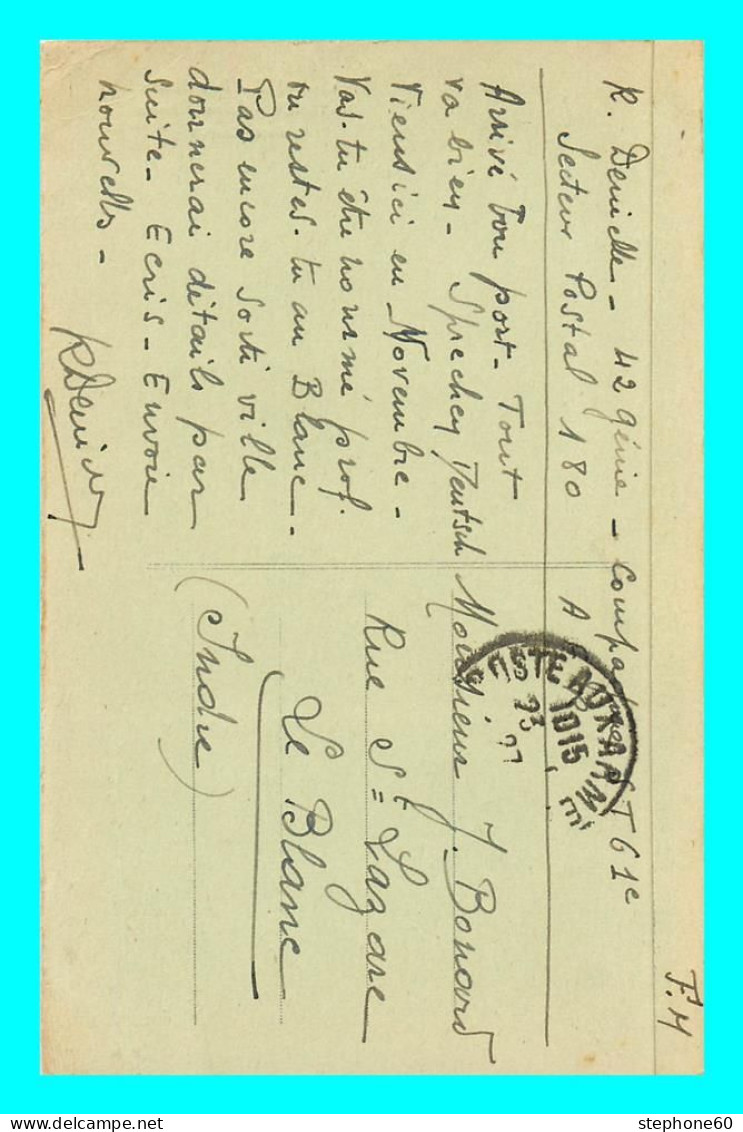 F.M
R. Denielle - 42 génie - Compagnie ST 61e
Secteur Postal 180 A
POSTE AUX ARM
1015
23
Arrivé bon port - Tout
va bien - Sprechen Deutsch
Viens ici en Novembre -
Vas-tu être nommé prof.
ou restes-tu au Blanc -
Pas encore sorti ville
donnerai détails par
suite - Ecris - Envoie
nouvelles -
Monsieur J. Bonard
Rue St Lazare
Le Blanc
(Indre)
stephone60